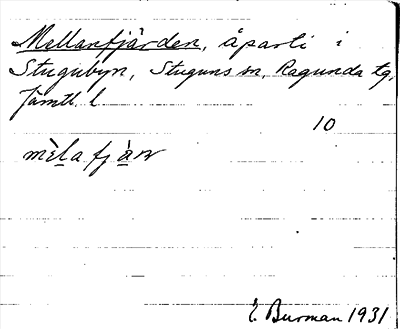 Mellanfjärden, åparti i
Stugubyn, Stuguns sn, Ragunda tg,
Jämtl. l
10
mèl̲a fjä̀n
E. Burman 1931